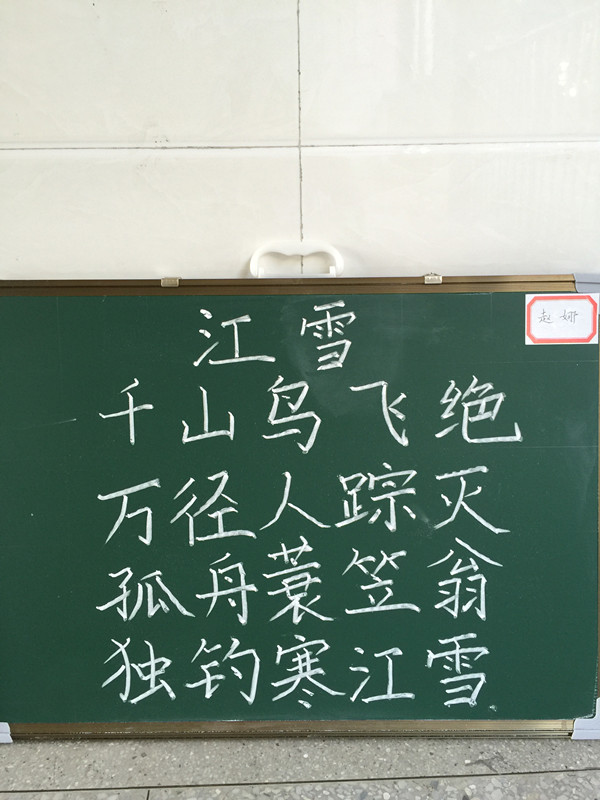 江雪
赵娜
千山鸟飞绝
万径人踪灭
孤舟蓑笠翁
独钓寒江雪